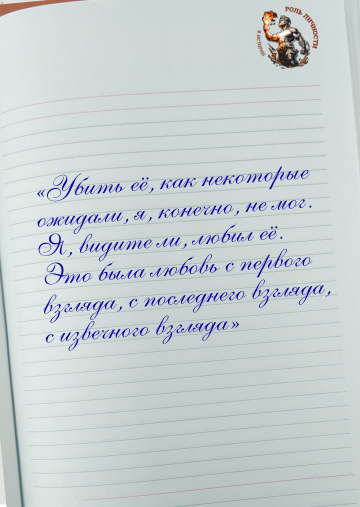 РОЛЬ ЛИЧНОСТИ
В ИСТОРИИ
«Убить её, как некоторые
ожидали, я, конечно, не мог.
Я, видите ли, любил её.
Это была любовь с первого
взгляда, с последнего взгляда,
с извечного взгляда»